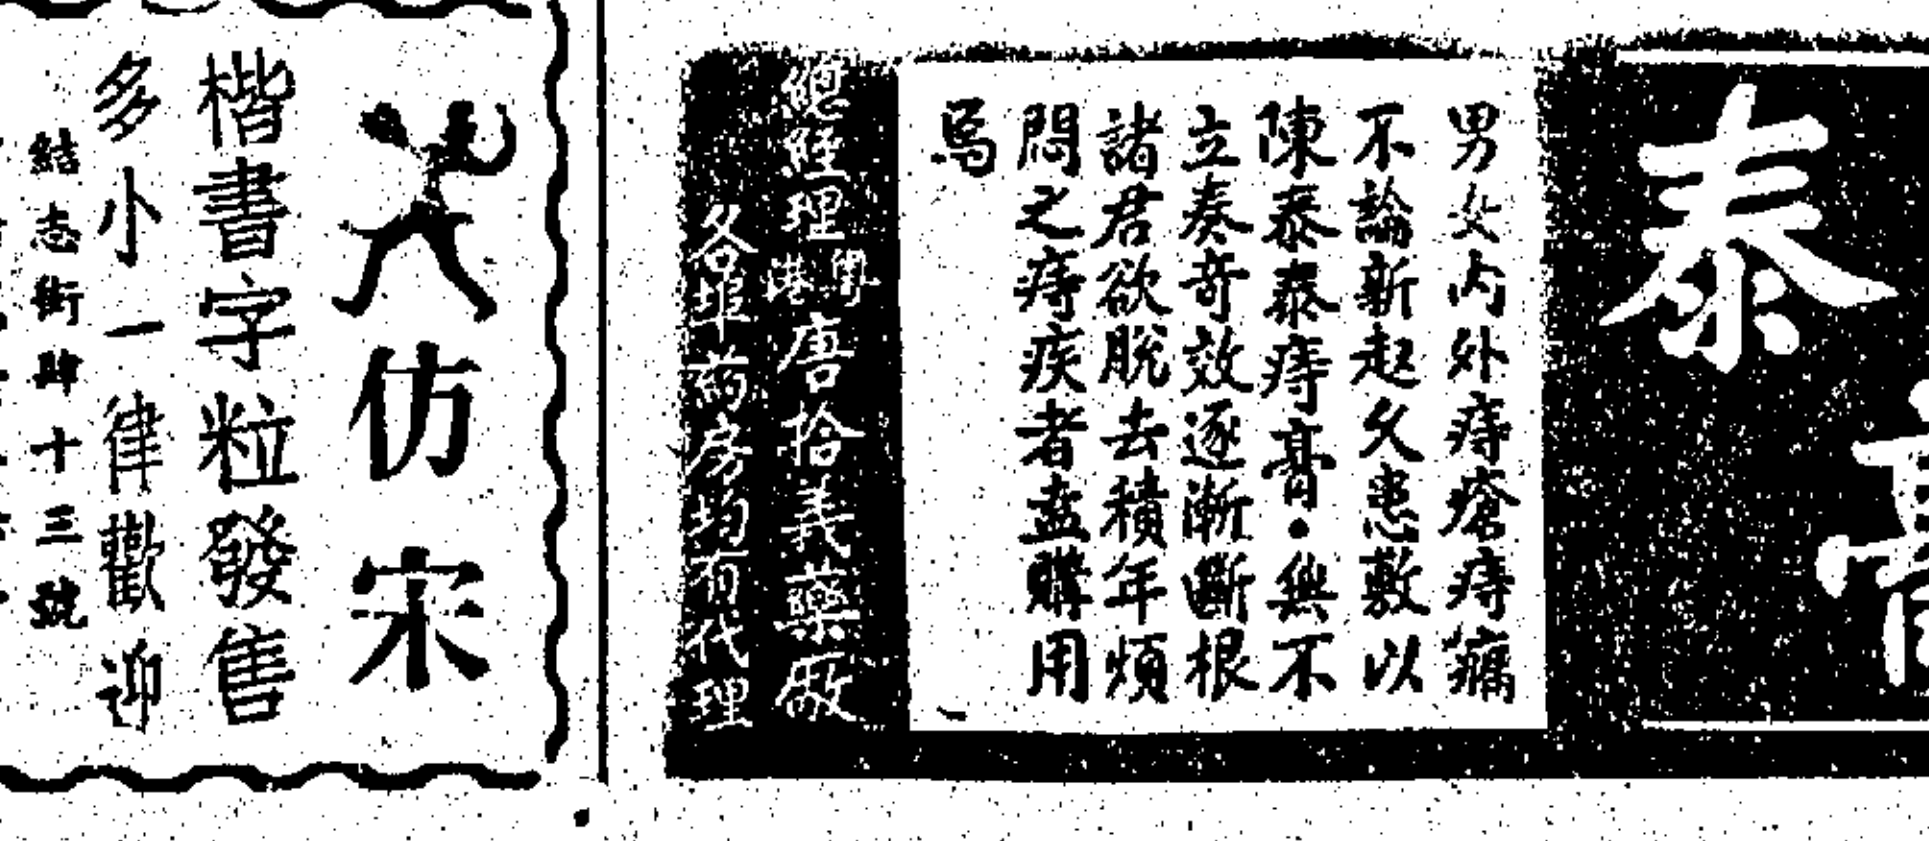 泰
膏
男女内外痔瘡痔痛
不論新起久患敷以
陳泰泰痔膏•無不
立奏奇效逐漸斷根
諸君欲脫去積年煩
悶之痔疾者盍購用
焉
總經理粵港唐拾義藥廠
各埠葯房均有代理
仿宋
楷書字粒發售
多小一律歡迎
結志街肆十三號